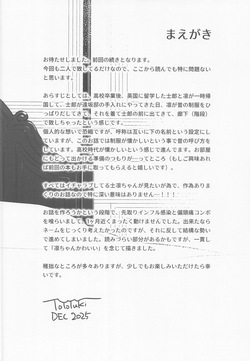 まえがき
お待たせしました、前回の続きとなります。
今回も二人で致してるだけなので、ここから読んでも特に問題ない
と思います。
あらすじとしては、高校卒業後、英国に留学した士郎と凛が一時帰
国して、士郎が遠坂邸の手入れにやってきた日、凛が昔の制服をひ
っぱりだしてきて、それを着て士郎の前に出てきて、廊下（階段）
で致しちゃったという感じです。
個人的な想いで恐縮ですが、呼称は互いに下の名前という設定にし
ていますが、このお話では制服が懐かしいという事で昔の呼び方を
しています。高校時代が懐かしいという感じで進んでます。お部屋
にもどって出かける準備のつもりが…ってところ（もしご興味あれ
ば前回の本もお手に取ってもらえると嬉しいです）
すべてはイチャラブしてる士凛ちゃんが見たいが為、作為あり
まくりのお話なので特に深い意味はありません。
お話を作ろうかという段階で、先取りインフル感染と偏頭痛コンボ
を喰らいまして、1ヶ月近くまったく動けませんでした。出来たなら
ネームをじっくり考えたかったのですが、それに反して結構な勢い
で進めてしまいました。読みづらい部分があるかもですが、一貫し
て『凛ちゃんかわいい』を念じて描きました。
稚拙なところが多々ありますが、少しでもお楽しみいただけたら幸
いです。
DEC 2025